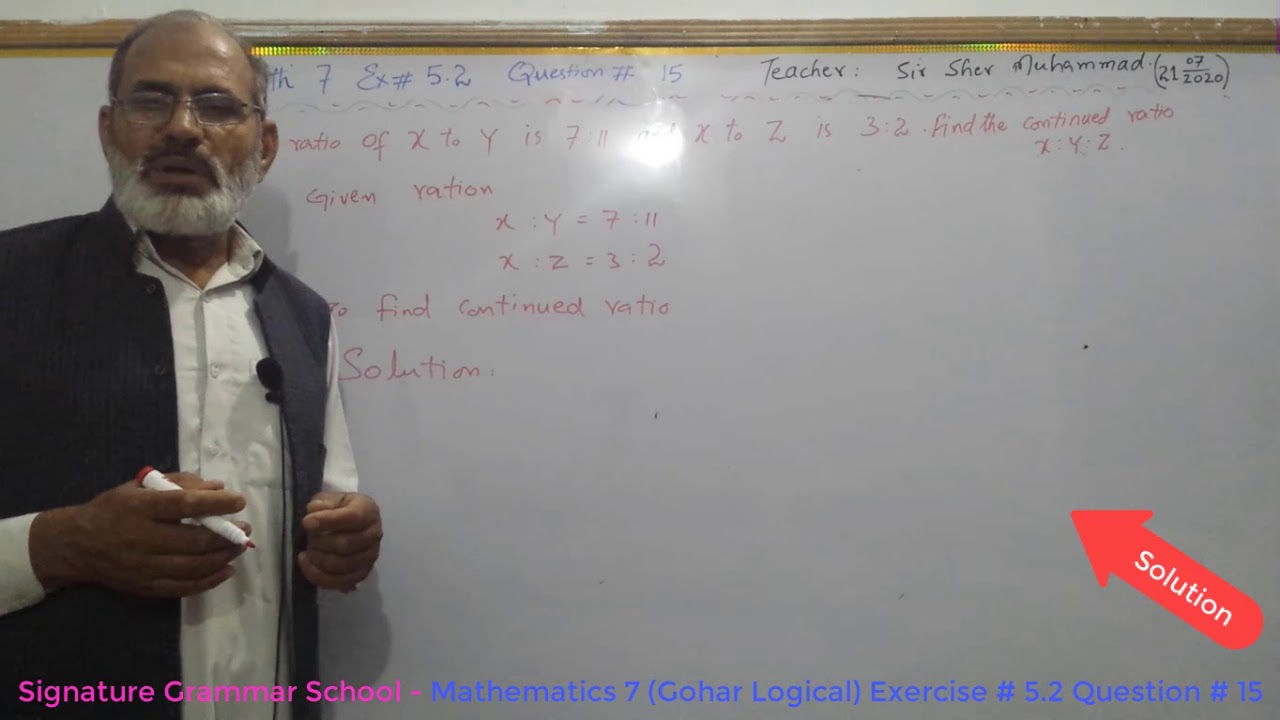 th 7 Ex# 5.2 Question# 15 Teacher: Sir Sher Muhammad. (21 07/2020)
ratio of X to Y is 7:11 X to Z is 3:2. Find the continued ratio
X:Y:Z.
Given ration
X : Y = 7 : 11
X : Z = 3 : 2
To find continued ratio
Solution:
Solution
Signature Grammar School - Mathematics 7 (Gohar Logical) Exercise # 5.2 Question # 15